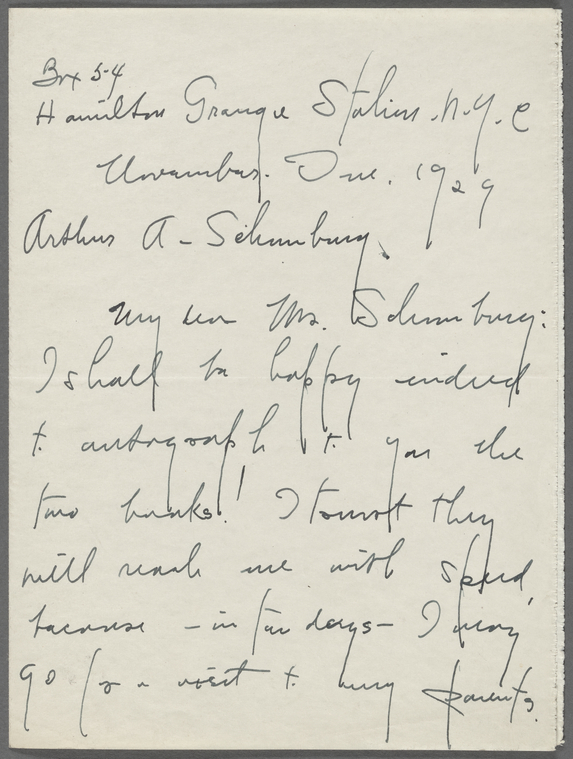 Box 54
Hamilton Grange Station. N.Y.C
November. One. 1929
Arthur A - Schomburg,
My dear Mr. Schomburg:
I shall be happy indeed
to autograph to you the
two books! I trust they
will reach me with speed,
because - in few days - I may
go for a visit to my parents.